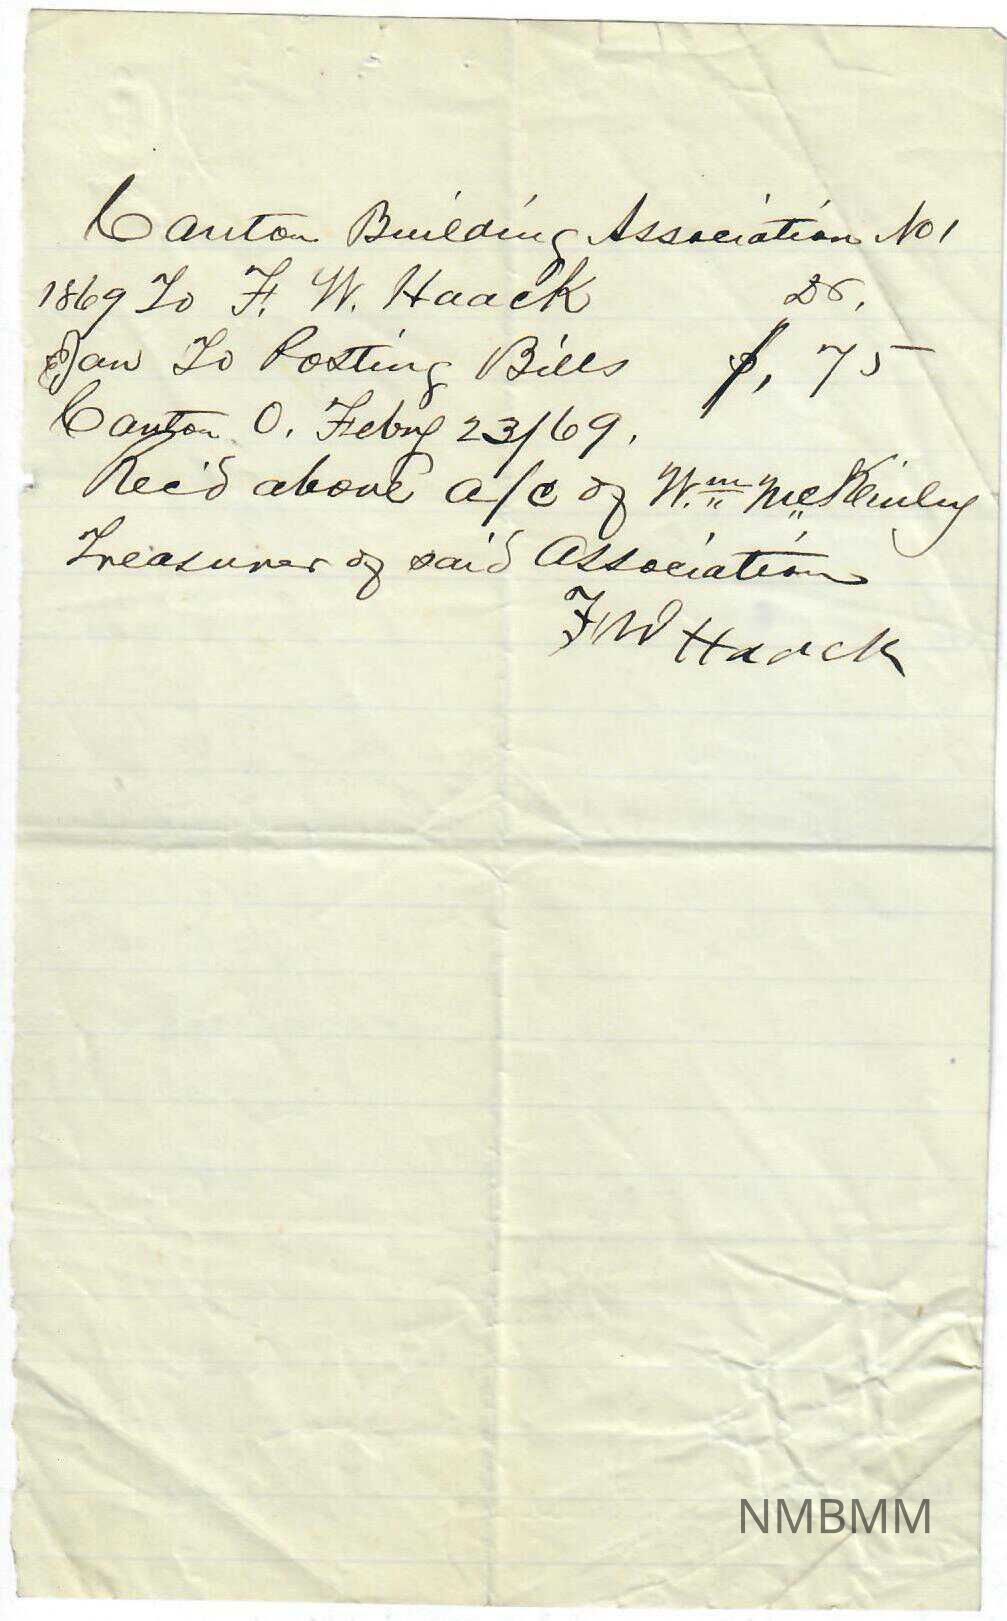 Canton Building Association No 1
1869 To F. W. Haack Dr.
Jan To Posting Bills $, 75
Canton O. Feby 23/69.
Rec'd above a/c of Wm McKinley
Treasurer of said Association
F W Haack
NMBMM